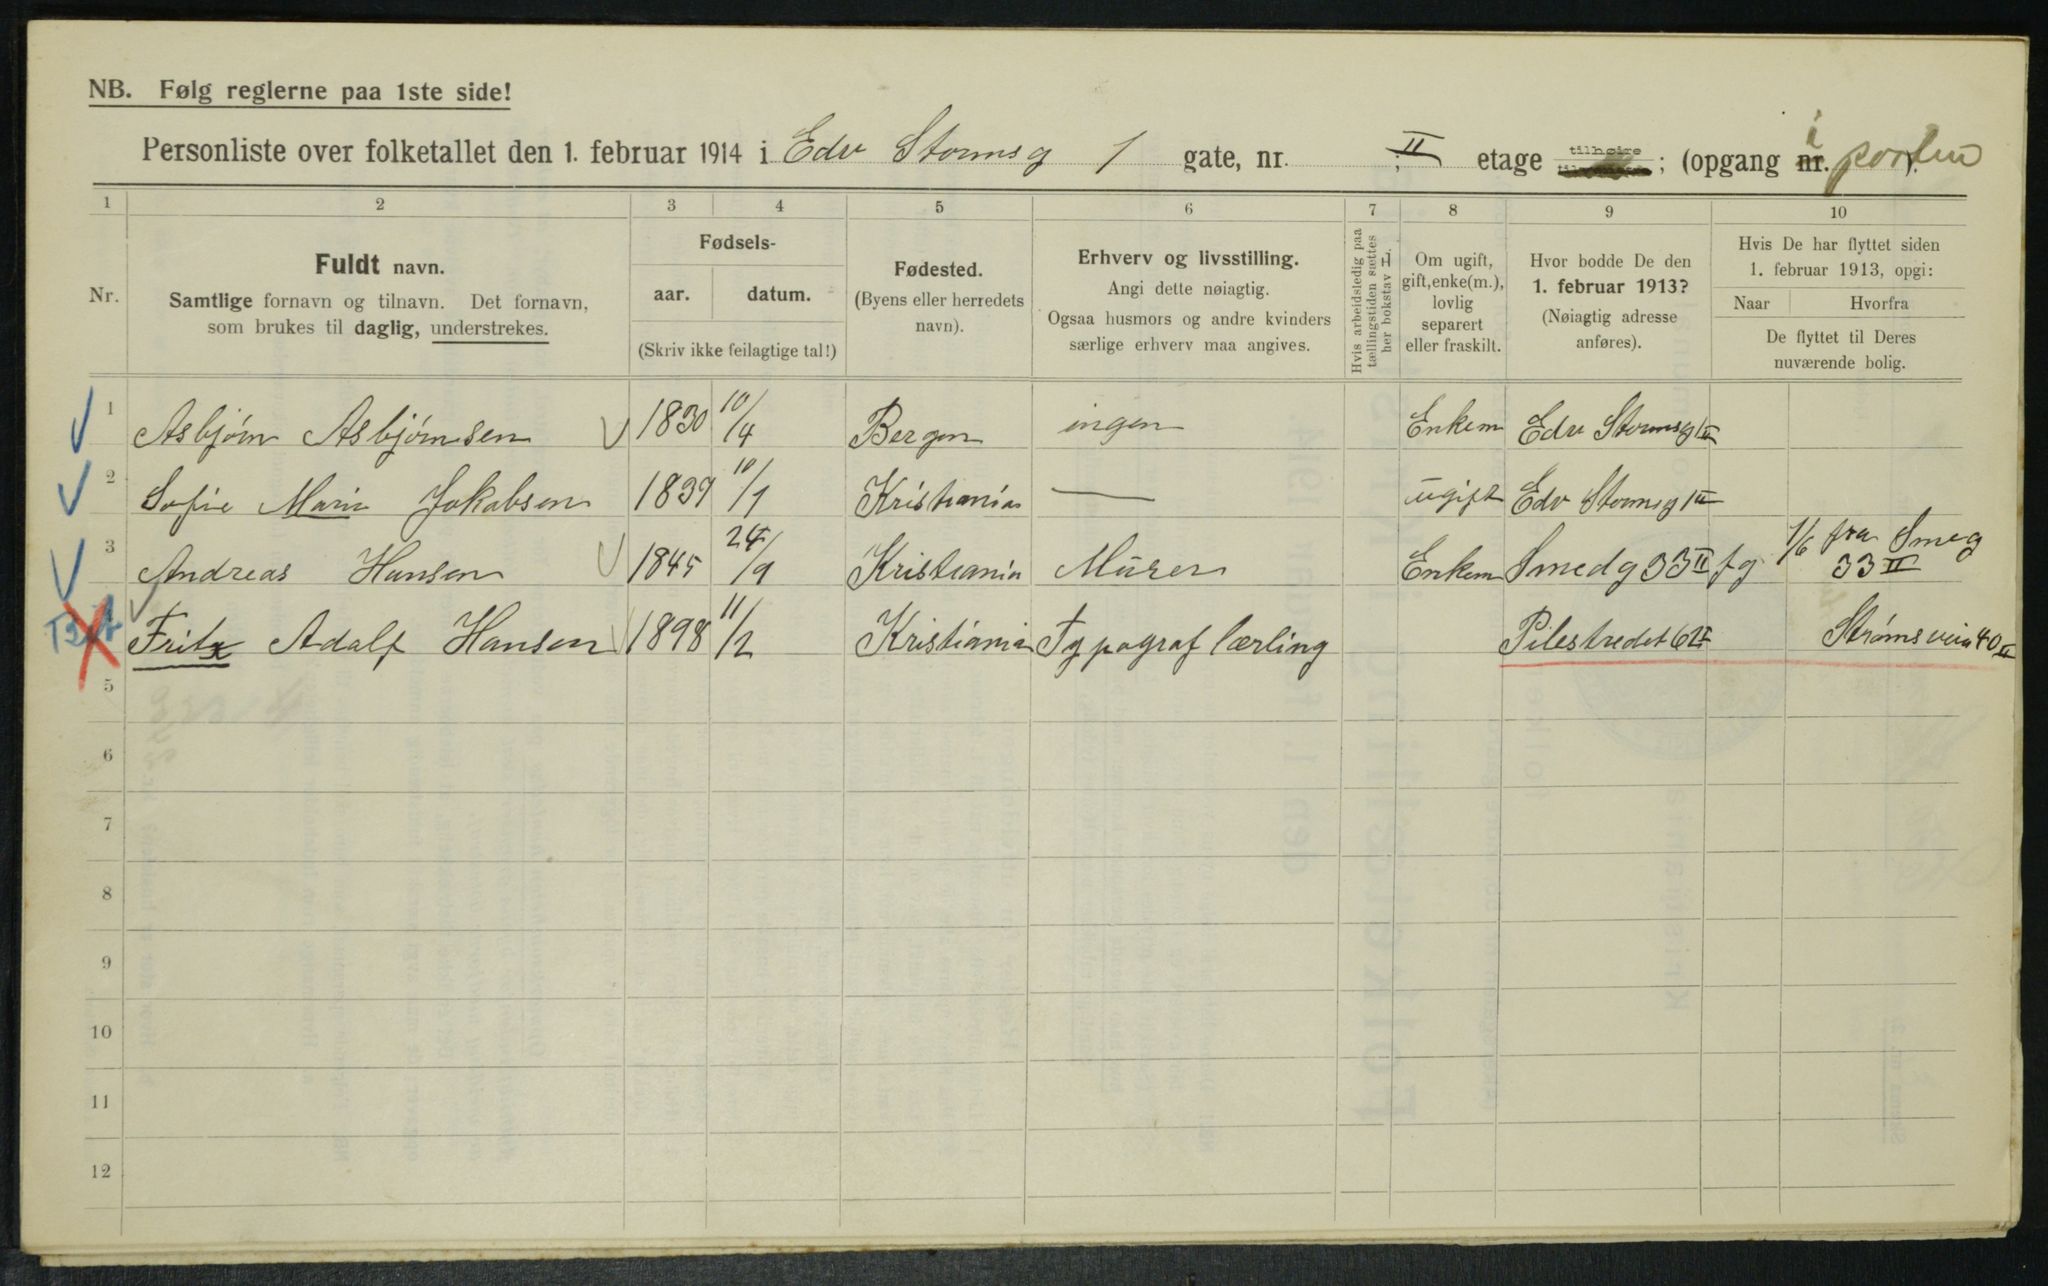 NB. Følg reglerne paa 1ste side!
Personliste over folketallet den 1. februar 1914 i Edv Stormsg 1 gate, nr. ; II etage tilhøire ; (opgang nr. i porten ).
1 2 3 4 5 6 7 8 9 10
Nr.
Fuldt navn.
Samtlige fornavn og tilnavn. Det fornavn,
som brukes til daglig, understrekes.
Fødsels-
aar. datum.
(Skriv ikke feilagtige tal!)
Fødested.
(Byens eller herredets
navn).
Erhverv og livsstilling.
Angi dette nøiagtig.
Ogsaa husmors og andre kvinders
særlige erhverv maa angives.
Hvis arbeidsledig paa
tællingstiden sættes
her bokstav L.
Om ugift,
gift, enke(m.),
lovlig
separert
eller fraskilt.
Hvor bodde De den
1. februar 1913?
(Nøiagtig adresse
anføres).
Hvis De har flyttet siden
1. februar 1913, opgi:
Naar Hvorfra
De flyttet til Deres
nuværende bolig.
1 Asbjørn Asbjørnsen 1830 10/4 Bergen ingen Enkem Edv Stormsg 1 II
2 Sofie Marie Jakobsen 1839 10/1 Kristiania — ugift Edv Stormsg 1 II
3 Andreas Hansen 1845 24/9 Kristiania Murer Enkem Smedg 33 II fg 1/6 fra Smeg 33 II
Fritz Adolf Hansen 1898 11/2 Kristiania Typograflærling Pilestredet 6 II Strømsveien 40 II
5
6
7
8
9
10
11
12